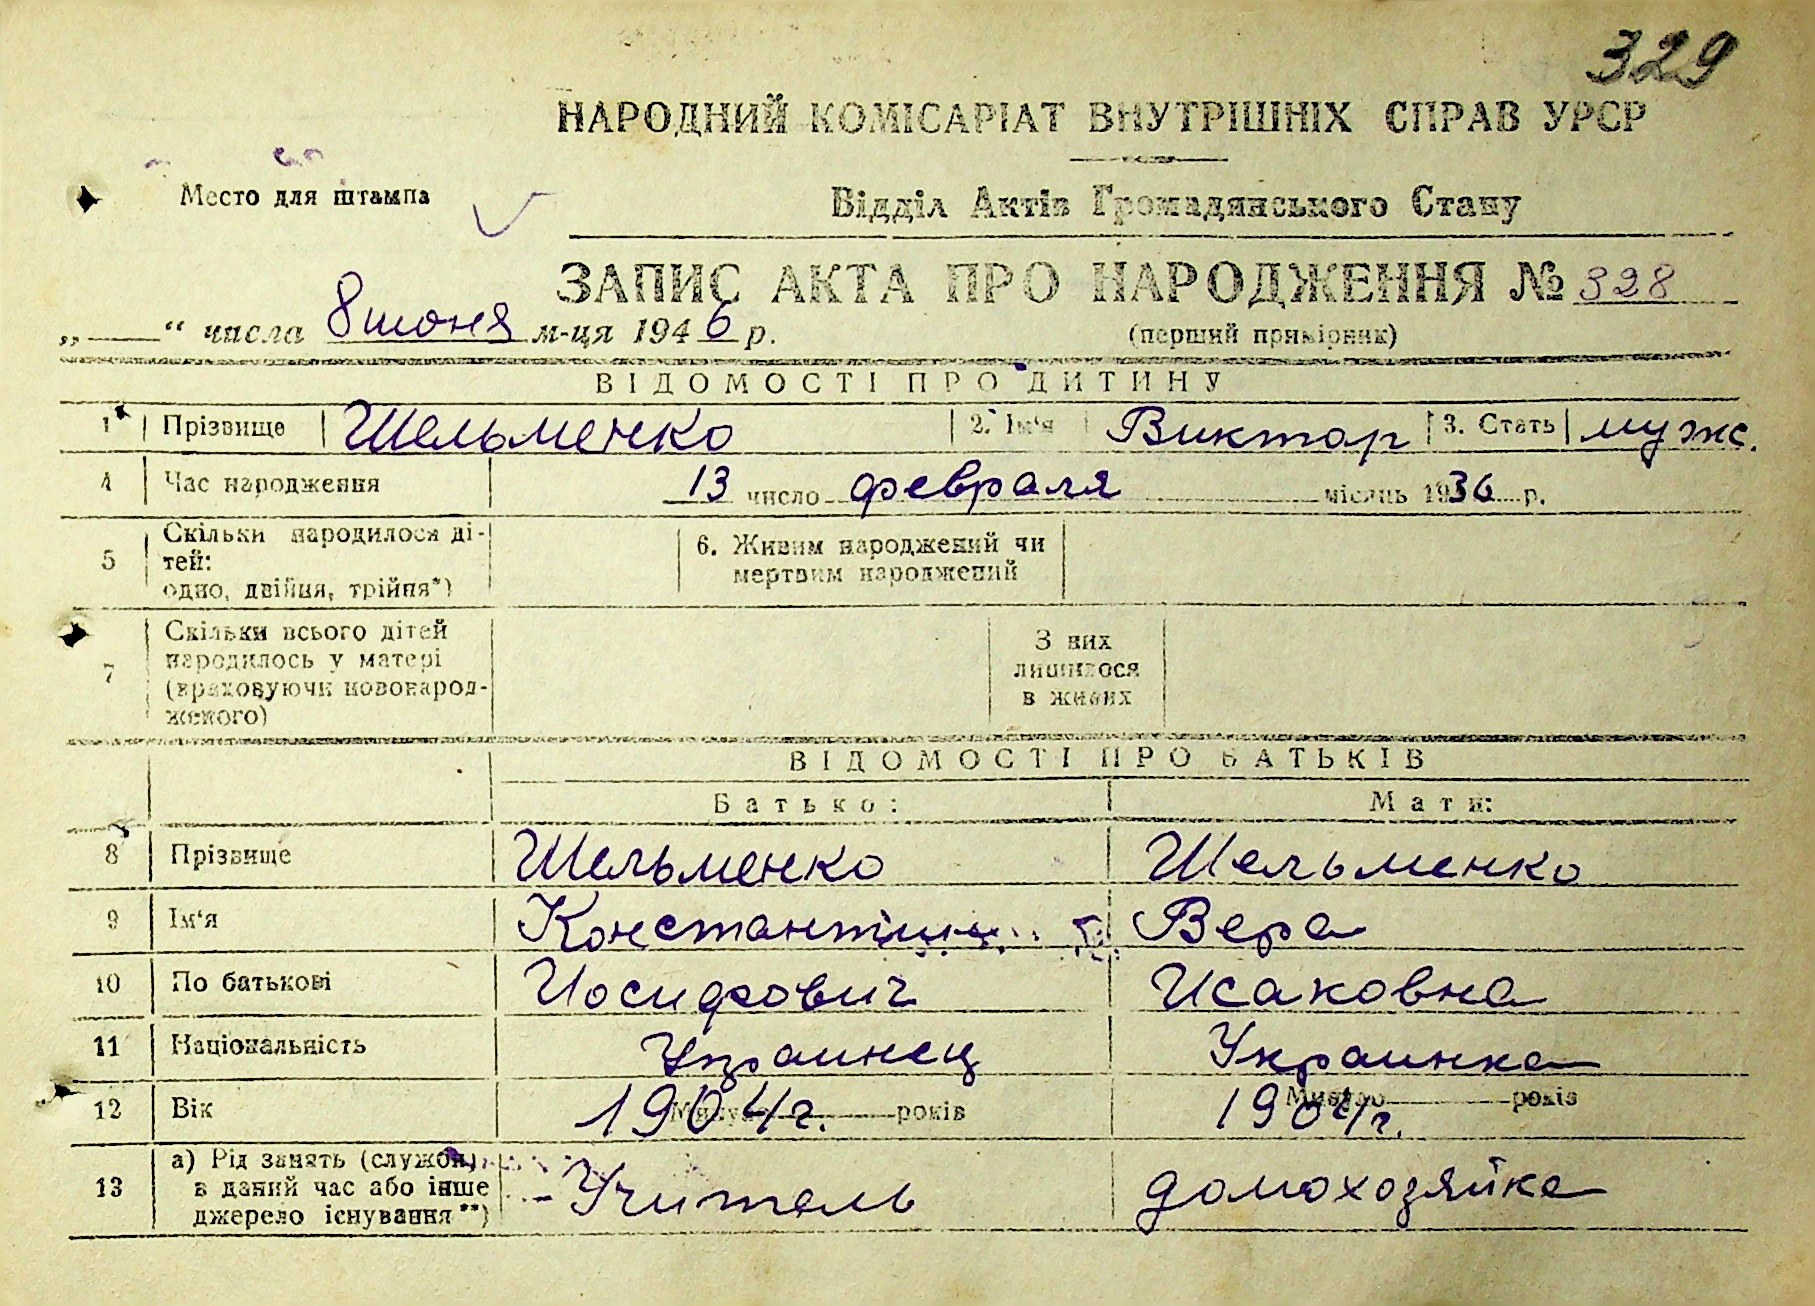 329
НАРОДНИЙ КОМІСАРІАТ ВНУТРІШНІХ СПРАВ УРСР
Место для штампа
Відділ Актів Громадянського Стану
ЗАПИС АКТА ПРО НАРОДЖЕННЯ № 328
„ “ числа 8 июня м-ця 1946 р.
(перший примірник)
ВІДОМОСТІ ПРО ДИТИНУ
1 Прізвище Шельменко 2. Ім‘я Виктор 3. Стать муж.
4 Час народження 13 число февраля місяць 1936 р.
5 Скільки народилося ді-
тей:
одно, двійня, трійня*)
6. Живим народжений чи
мертвим народжений
7 Скільки всього дітей
народилось у матері
(враховуючи новонарод-
женого)
З них
лишилося
в живих
ВІДОМОСТІ ПРО БАТЬКІВ
Батько: Мати:
8 Прізвище Шельменко Шельменко
9 Ім‘я Константин Вера
10 По батькові Иосифович Исаковна
11 Національність Украинец Украинка
12 Вік 1904 г. Минуло років 1904 г. Минуло років
13 а) Рід занять (служби)
в даний час або інше
джерело існування**)
Учитель домохозяйка